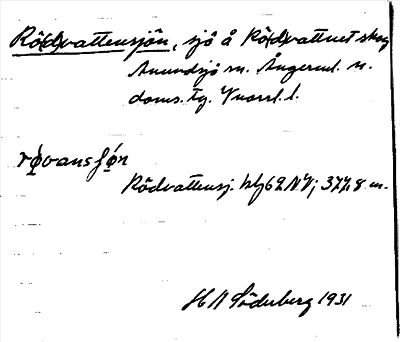 Rö(d)vattensjön, sjö å Rö(d)vattnet skog
Anundsjö sn. Ångerml. n.
doms. tg. Vnorrl. l.
rövansjön
Rödvattensj. hbf 62 NV; 377,8 m.
H N Söderberg 1931